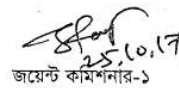 25.10.17
জয়েন্ট কমিশনার-১